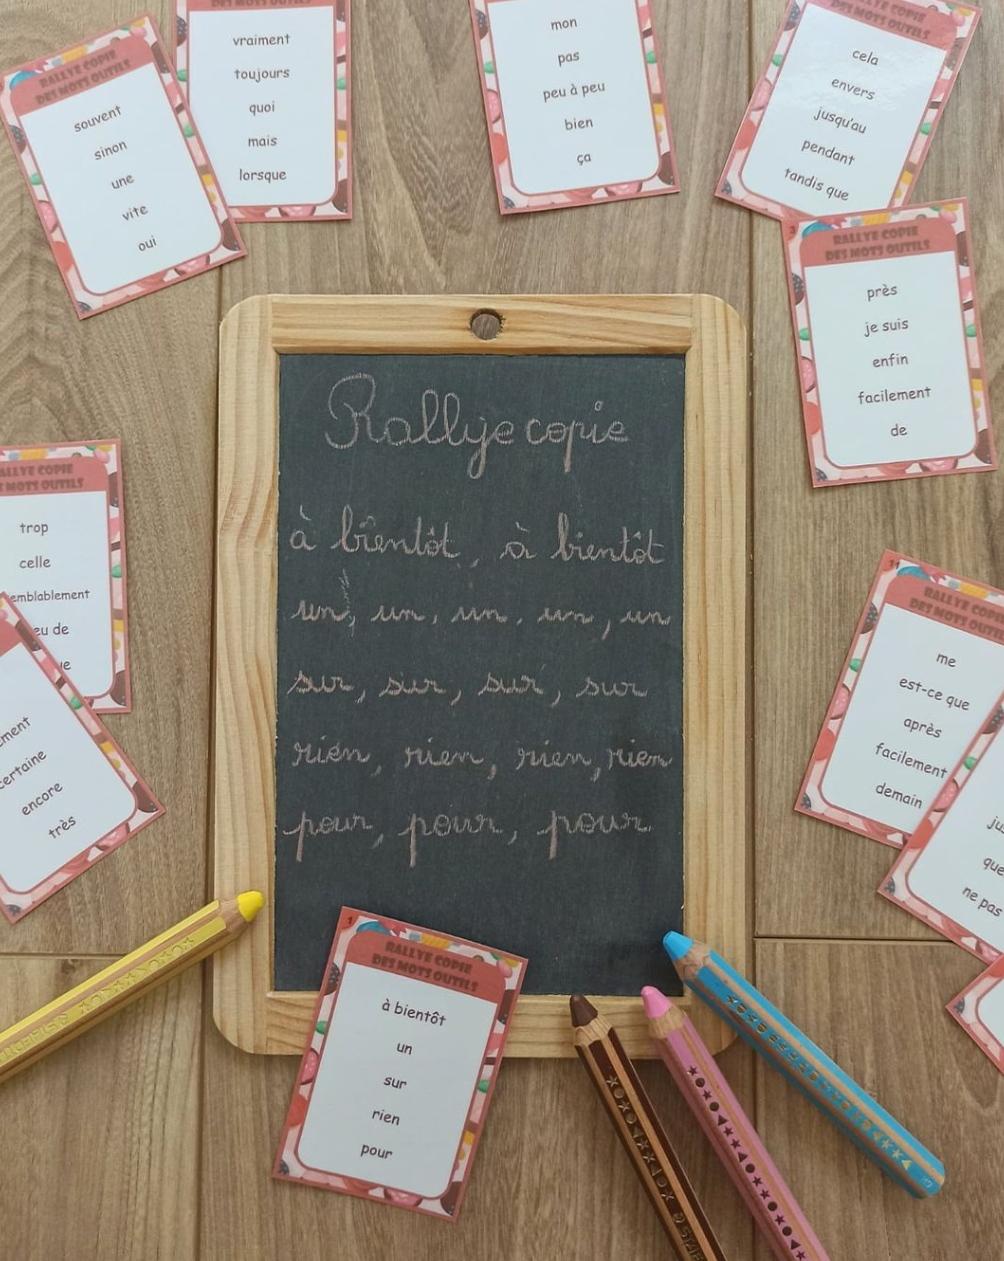 RALLYE COPIE
DES MOTS OUTILS
souvent
sinon
une
vite
oui
DES MOTS OUTILS
vraiment
toujours
quoi
mais
lorsque
mon
pas
peu à peu
bien
ça
RALLYE COPIE
DES MOTS OUTILS
cela
envers
jusqu'au
pendant
tandis que
3
RALLYE COPIE
DES MOTS OUTILS
près
je suis
enfin
facilement
de
Rallye copie
à bientôt, à bientôt
un, un, un, un, un
sur, sur, sur, sur
rien, rien, rien, rien
pour, pour, pour
COPIE
MOTS OUTILS
trop
celle
de
certaine
encore
très
11
RALLYE COPIE
DES MOTS OUTILS
me
est-ce que
après
facilement
demain
que
ne pas
1
RALLYE COPIE
DES MOTS OUTILS
à bientôt
un
sur
rien
pour